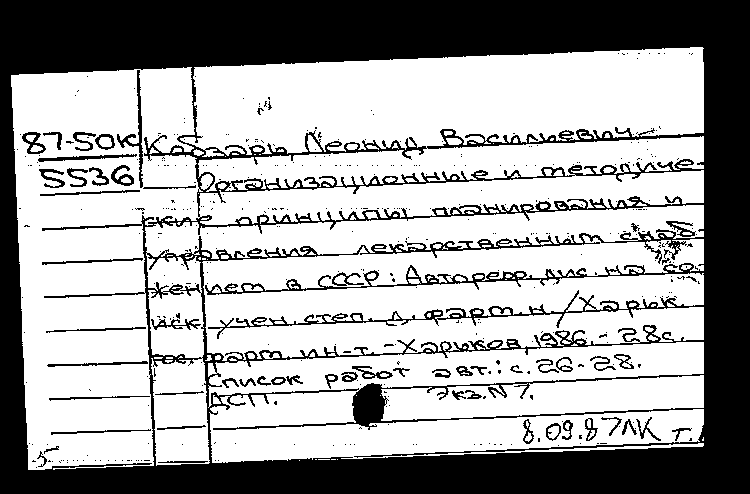 87-50К Кабзарь, Леонид Васильевич
5536 Организационные и методиче-
ские принципы планирования и
управления лекарственным снаб-
жением в СССР: Автореф. дис. на со-
иск. учен. степ. д. фарм. н. / Харьк.
гос. фарм. ин-т. - Харьков, 1986. - 28с.
Список работ авт.: с. 26-28.
ДСП. Экз. N 7.
8.09.87 ЛК т.
5